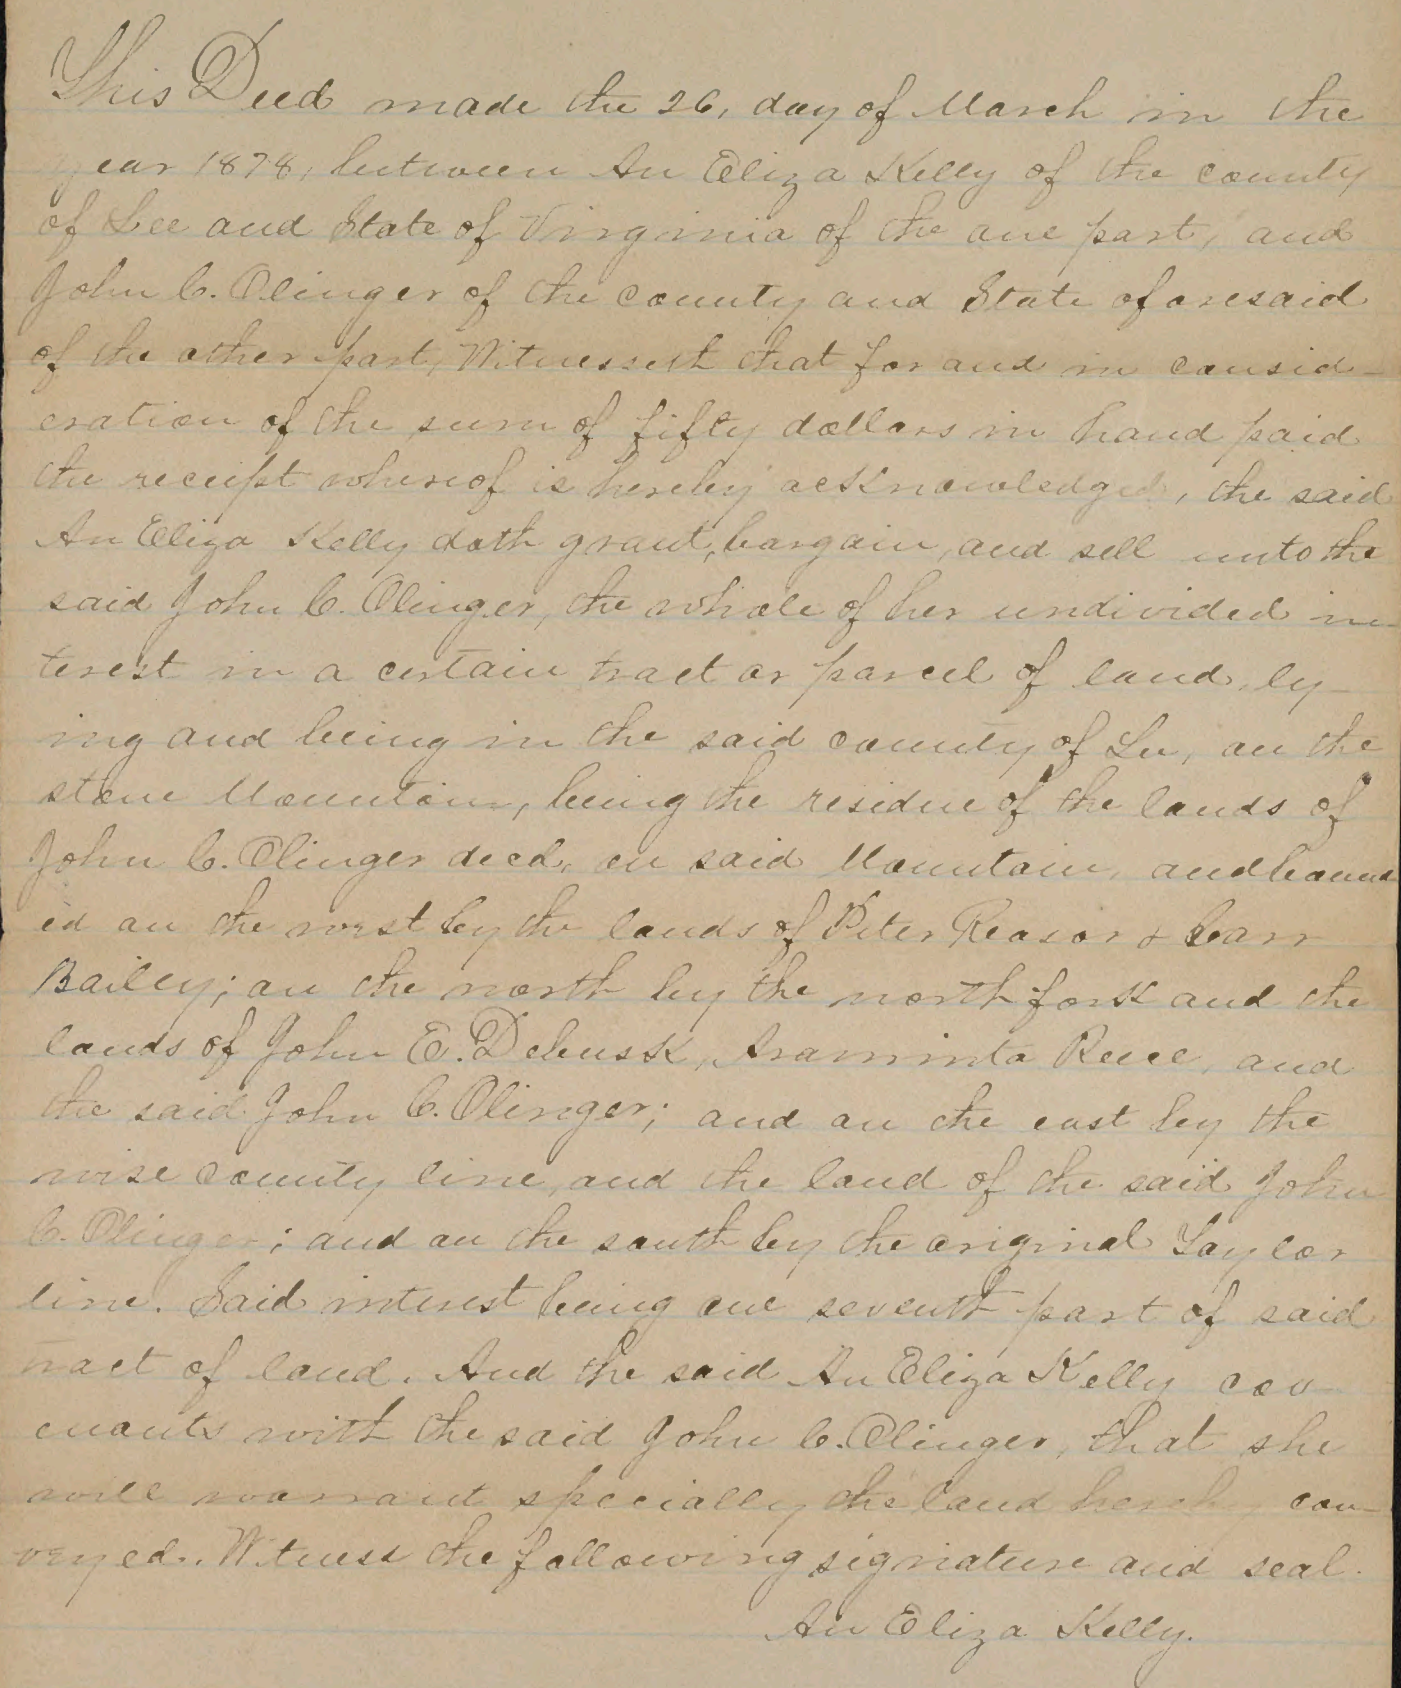 This Deed made the 26, day of March in the
year 1878, between An Eliza Kelly of the county
of Lee and State of Virginia of the one part, and
John C. Olinger of the county and State of oresaid
of the other part, Witnesseth that for and in consid-
eration of the sum of fifty dollars in hand paid
the receipt whereof is hereby acknowledged, the said
An Eliza Kelly doth grant, bargain, and sell unto the
said John C. Olinger, the whole of her undivided in-
terest in a certain tract or parcel of land, ly-
ing and being in the said county of Lee, on the
stone Mountain, being the residue of the lands of
John C. Olinger decd, on said Mountain, and bound
ed on the west by the lands of Peter Reasor & Carr
Bailey; on the north by the north fork and the
lands of John E. Debusk, Araminta Reece, and
the said John C. Olinger; and on the east by the
wise county line, and the land of the said John
C. Olinger; and on the south by the original Taylor
line. Said interest being one seventh part of said
tract of land. And the said An Eliza Kelly cov
enants with the said John C. Olinger, that she
will warrant specially the land hereby con-
veyed. Witness the following signature and seal.
An Eliza Kelly.